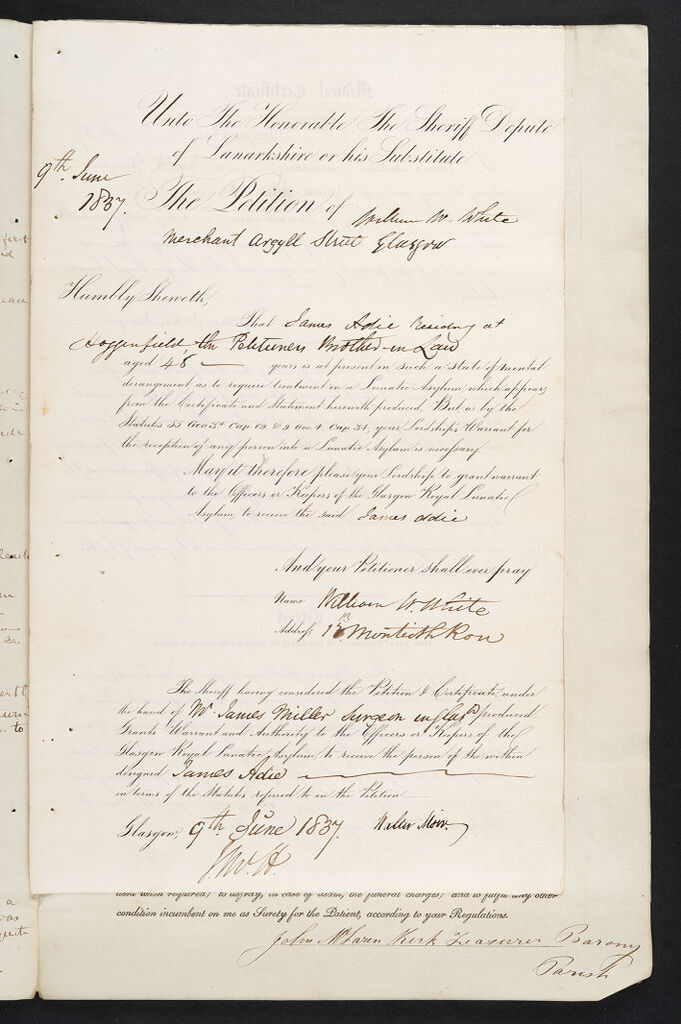 Unto The Honorable The Sheriff Depute
of Lanarkshire or his Substitute
9th June
1837.
The Petition of William W. White
Merchant Argyll Street Glasgow
Humbly Sheweth,
That James Adie residing at
Hoggenfield the Petitioners Brother-in Law
aged 48 years is at present in such a State of mental
derangement as to require treatment in a Lunatic Asylum, which appears
from the Certificate and Statement herewith produced, But, as by the
Statutes 55 Geo. 3d Cap. 69. & 9 Geo. 4 Cap. 34, your Lordship's Warrant for
the reception of any person into a Lunatic Asylum is necessary
May it therefore please your Lordship, to grant warrant
to the Officers or Keepers of the Glasgow Royal Lunatic
Asylum, to receive the said James Adie
And your Petitioner shall ever pray
Name William W. White
Address 13 Montieth Row
The Sheriff having considered the Petition & Certificate under
the hand of Mr. James Miller Surgeon in Glasd. produced
Grants Warrant and Authority to the Officers or Keepers of the
Glasgow Royal Lunatic Asylum, to receive the person of the within
designed James Adie
in terms of the Statutes referred to in the Petition
Glasgow, 9th June 1837.
condition incumbent on me as Surety for the Patient, according to your Regulations.
John McLaren Kirk Treasurer Barony
Parish